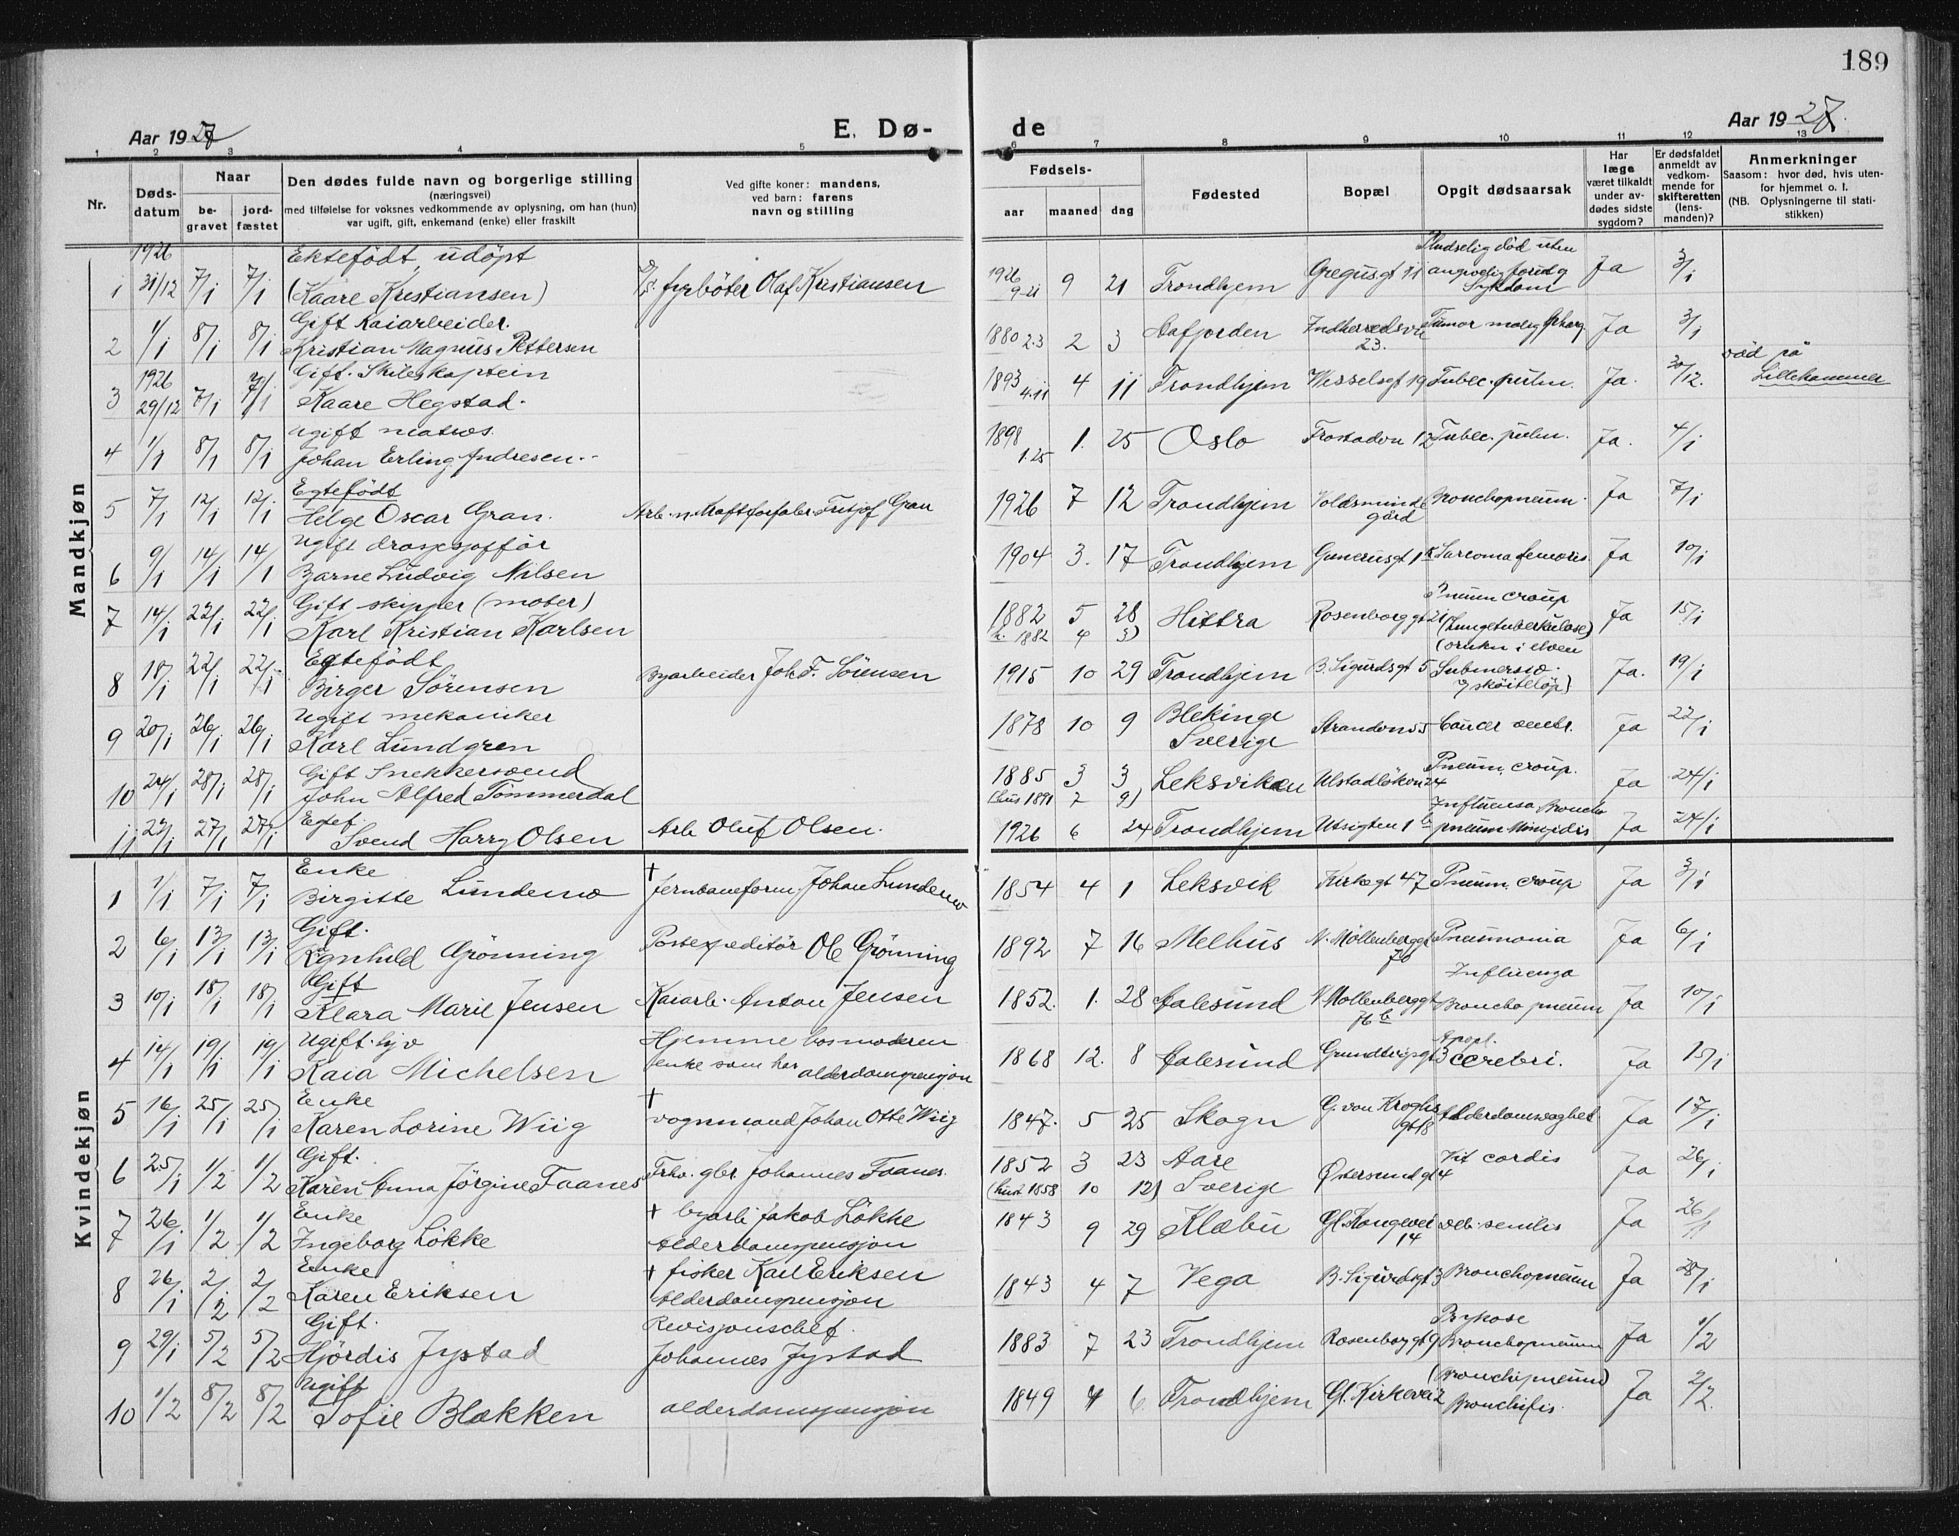 189
Aar 1927
E. Dø-
de
Aar 1927.
1 2 3 4 5 6 7 8 9 10 11 12 13
Nr. Døds-datum Naar be-gravet jord-fæstet Den dødes fulde navn og borgerlige stilling (næringsvei) med tilføielse for voksnes vedkommende av oplysning, om han (hun) var ugift, gift, enkemand (enke) eller fraskilt Ved gifte koner: mandens, ved barn: farens navn og stilling Fødsels- aar maaned dag Fødested Bopæl Opgit dødsaarsak Har læge været tilkaldt under av-dødes sidste sygdom? Er dødsfaldet anmeldt av vedkom-mende for skifteretten (lens-manden)? Anmerkninger Saasom: hvor død, hvis uten-for hjemmet o. l. (NB. Oplysningerne til stati-stikken)
Mandkjøn
1926 Ektefödt, udöpt Pludselig död uten
1 31/12 7/1 7/1 (Kaare Kristiansen) D/S. fyrböter Olaf Kristiansen 1926 9 21 Trondhjem Gregusgt 11 angivelig forutg Sykdom Ja 3/1
9-21
Gift Kaiarbeider.
2 1/1 8/1 8/1 Kristian Magnus Pettersen 1880 2.3 2 3 Aafjorden Indherredsvei 23. Tumor malig Ja 3/1
1926 Gift. Skibskaptein död på
3 29/12 7/1 7/1 Kaare Hegstad. 1893 4.11 4 11 Trondhjem Wesselsgt 19 Tubec. pulm. Ja. 30/12. Lillehammer
Ugift matros.
4 1/1 8/1 8/1 Johan Erling Andresen. 1898 1.25 1. 25 Oslo Frostadvn 12 Tubec. pulm. Ja. 4/1
Egtefödt
5 7/1 12/1 12/1 Helge Oscar Gran. Arb. v. Kraftforsbr. Fritjof Gran 1926 7 12 Trondhjem Voldsminde gård Bronchopneum. Ja 7/1
Ugift drosjesjofför
6 9/1 14/1 14/1 Bjarne Ludvig Nilsen 1904 3. 17 Trondhjem Gunerusgt 1 Sarcoma femoris. Ja 10/1
Gift skipper (motor) Pneum croup
7 14/1 22/1 22/1 Karl Kristian Karlsen 1882 5 28 Hittra Rosenborggt 21 (Lungetuberkulose) Ja 15/1
h. 1882 4 3)
Egtefödt (drukn i elven
8 18/1 22/1 22/1 Birger Sörensen Byarbeider Joh. F. Sörensen 1915 10 29 Trondhjem B. Sigurdsgt 5 Submersio. Ja. 19/1
skøiteløp)
Ugift mekaniker
9 20/1 26/1 26/1 Karl Lundgren 1878 10 9 Blekinge Sverige Strandvn 55 Cancer ventr. Ja 22/1
Gift Snekkersvend
10 24/1 28/1 28/1 John Alfred Tömmerdal 1885 3 3 Leksviken Ulstadlökvn 24 Pneum, croup. Ja 24/1
(hus 1891 2 9)
Egtef. Influensa, Broncho
11 22/1 27/1 27/1 Svend Harry Olsen Arb Oluf Olsen. 1926 6 24 Trondhjem Utsigten 1 b pneum Ja 24/1
Kvindekjøn
Enke †
1 1/1 7/1 7/1 Birgitte Lundemo Jernbaneform. Johan Lundemo 1854 4 1 Leksvik Kirkegt 47 Pneum, croup Ja 3/1
Gift.
2 6/1 13/1 13/1 Ragnhild Grönning Postexpeditör Ole Grönning 1892 7 16 Melhus N. Möllenberggt 70 Pneumonia Ja 6/1
Gift Influenza
3 10/1 18/1 18/1 Klara Marie Jensen Kaiarb. Anton Jensen 1852. 1. 28 Aalesund N Möllenberggt 76 b Broncho pneum Ja 10/1
Ugift. Hjemme hos moderen Apopl.
4 14/1 19/1 19/1 Kaia Michelsen enke som har alderdomspensjon 1868 12. 8 Aalesund Grundtvigsgt 3 cerebri. Ja 15/1
Enke †
5 16/1 25/1 25/1 Karen Lorine Wiig vognmand Johan Otte Wiig 1847. 5 25 Skogn G. von Kroghs gt 8 Alderdomsvaghet Ja 17/1
Gift.
6 25/1 1/2 1/2 Karen Anna Jörgine Faanes Frhv. gbr Johannes Faanes. 1852 3 23 Aare Sverige Östersundgt 4 Vit cordis Ja 26/1
(hust 1858 10 12)
Enke † byarb Jakob Lökke
7 26/1 1/2 1/2 Ingeborg Lökke Alderdomspensjon 1843 9 29 Klæbu Gl. Kongevei 14 Deb. senilis Ja 26/1
Enke † fisker Karl Eriksen
8 26/1 2/2 2/2 Karen Eriksen Alderdomspensjon 1843 4 7 Vega B. Sigurdsgt 3 Bronchopneum Ja 28/1
Gift. Revisjonschef. Psykose
9 29/1 5/2 5/2 Hjördis Jystad Johannes Jystad 1883 7 23 Trondhjem Rosenborggt 9 Bronchopneum Ja 1/2
Ugift (Bronchopneum)
10 1/2 8/2 8/2 Sofie Blakken alderdomspensjon 1849 4 6 Trondhjem Gl. Kirkevei 2 Bronchitis. Ja 2/2.